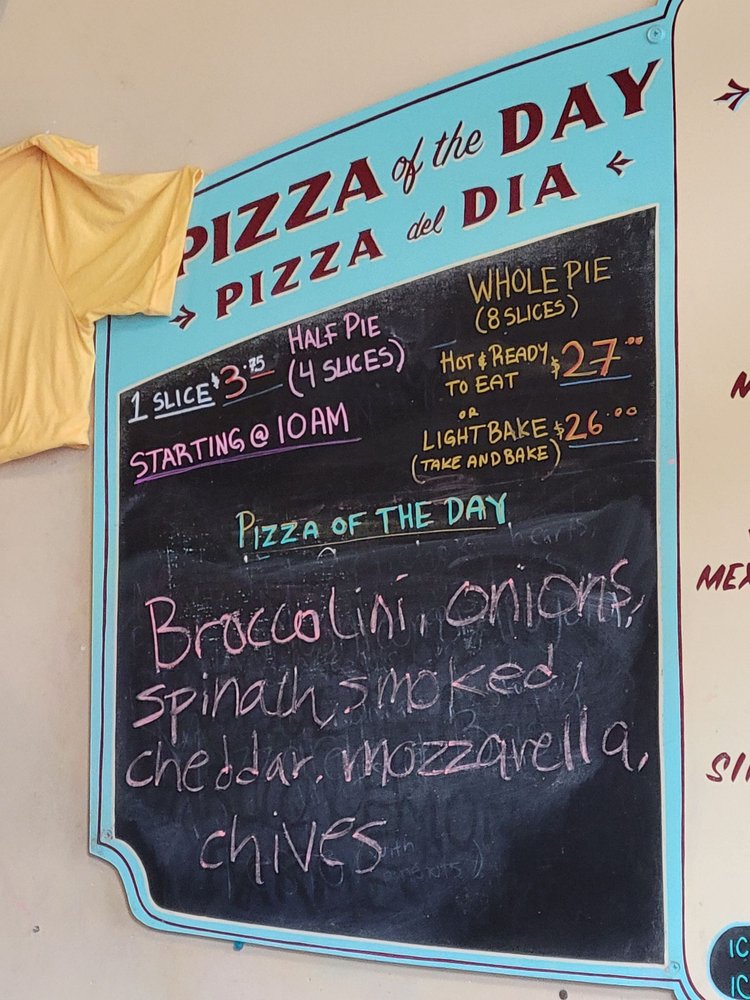 PIZZA of the DAY
→ PIZZA del DIA ←
1 SLICE $3.75
HALF PIE
(4 SLICES)
STARTING @ 10AM
WHOLE PIE
(8 SLICES)
HOT & READY
TO EAT $27.00
OR
LIGHT BAKE $26.00
(TAKE AND BAKE)
PIZZA OF THE DAY
Broccolini, onions,
spinach, smoked
cheddar, mozzarella,
chives